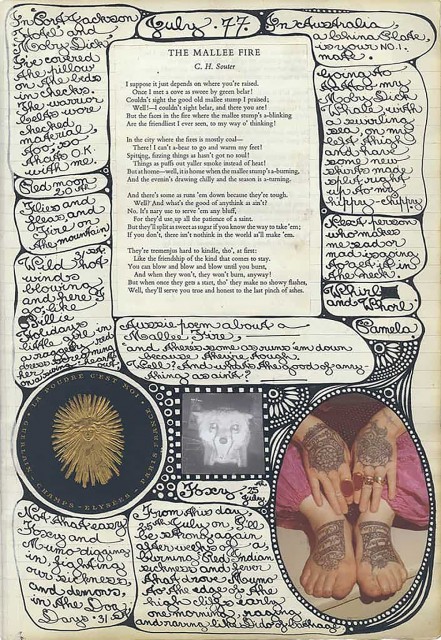 July. 77.
In Port Jackson
Hotel and
Moby Dick
I've covered
the pillow
on the bed
in checks.
The worrior
belts wore
checked
material,
too, so
thats O.K.
with me.
Red moon
Flies and
fleas and
Fire on
the mountain
Wild hot
winds
blowing
and here I
go like
Billie
Holidays
little girl in
THE MALLEE FIRE
C. H. Souter
I suppose it just depends on where you're raised.
Once I met a cove as swore by green belar!
Couldn't sight the good old mallee stump I praised;
Well!—I couldn't sight belar, and there you are!
But the faces in the fire where the mallee stump's a-blinking
Are the friendliest I ever seen, to my way o' thinking!
In the city where the fires is mostly coal—
There! I can't a-bear to go and warm my feet!
Spitting, fizzing things as hasn't got no soul!
Things as puffs out yaller smoke instead of heat!
But at home—well, it is home when the mallee stump's a-burning,
And the evenin's drawing chilly and the season is a-turning.
And there's some as runs 'em down because they're tough.
Well? And what's the good of anythink as ain't?
No. It's nary use to serve 'em any bluff,
For they'd use up all the patience of a saint.
But they'll split as sweet as sugar if you know the way to take 'em;
If you don't, there isn't nothink in the world as'll make 'em.
They're tremenjus hard to kindle, tho', at first:
Like the friendship of the kind that comes to stay.
You can blow and blow and blow until you burst,
And when they won't, they won't burn, anyway!
But when once they gets a start, tho' they make no showy flashes,
Well, they'll serve you true and honest to the last pinch of ashes.
In Australia,
a china plate,
is your NO.1.
mate.
Going to
tattoo my
Moby Dick
Whale with
a swirling
sea, on my
left thigh
and have
some new
shirts made
split right
up to my
hippy-chippy
Next person
who makes
me sad or
mad is going
to get it in
the neck!
Whirl
and Whorl
Pamela.
Aussie poem about a
Mallee Fire,
and theres some as runs 'em down
because they're tough.
Well? And whats the good of any
thing as ain't?
LA POUDRE C'EST MOI
GUERLAIN · CHAMPS-ELYSÉES · PARIS
Foxy
25
July
Not that easy
Foxy and
Mumo digging
in, fighting
our sickness
and demons,
in the Dog
Days. 31/5t
From this day,
25th July on I'll
be strong again
after weeks of a
burning Red Indian
sickness and fever
that drove Mumo
to the edge of the
high cliffs early
one morning, raging
and raving like Dido of Carthage